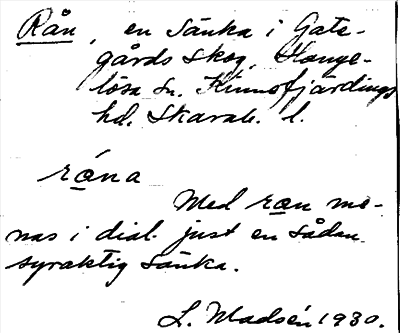 Rån, en sänka i Gate-
gårds skog, Slänge-
lösa sn. Kinnefjärdings
hd. Skarab. l.
råna
Med ron me-
nas i dial. just en sådan
syraktig sänka.
L. Madsén 1930.